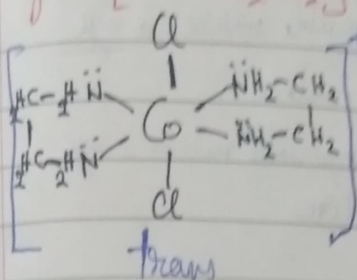 Cl
H₂C-H₂N̈ N̈H₂-CH₂
Co
H₂C-H₂N̈ N̈H₂-CH₂
Cl
trans